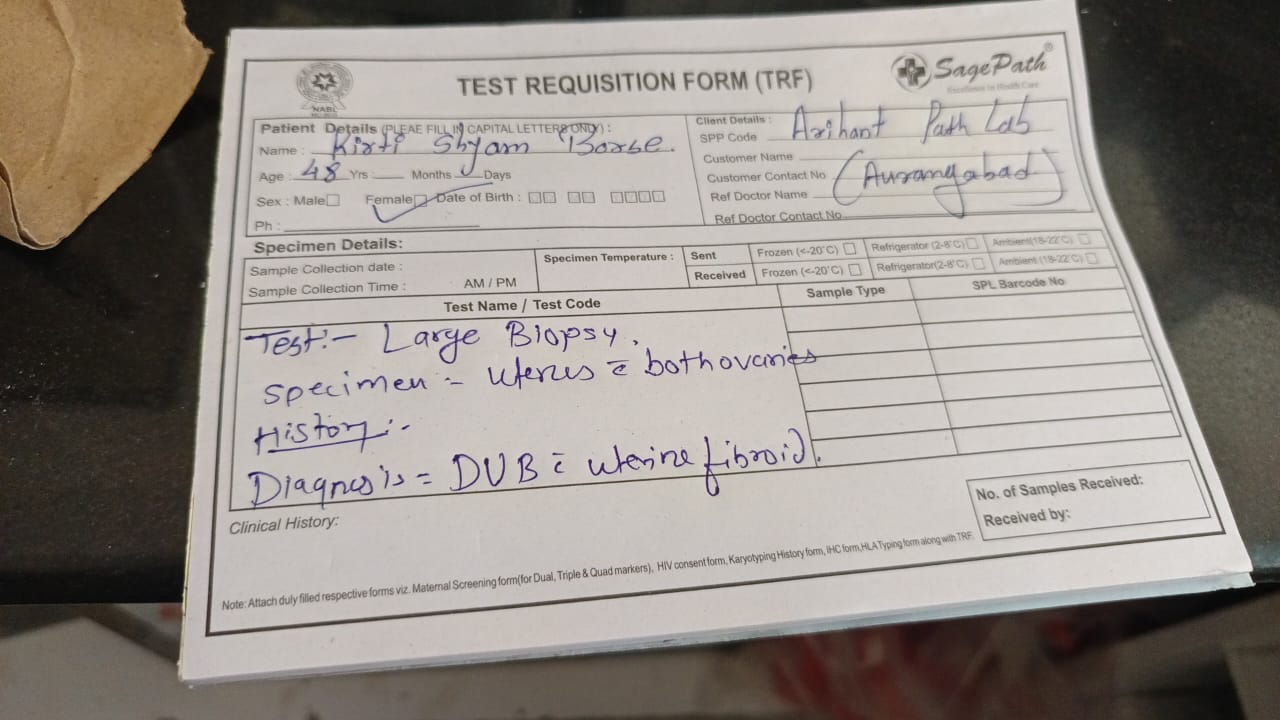 TEST REQUISITION FORM (TRF)
NABL
SagePath®
Excellence In Health Care
Patient Details (PLEAE FILL IN CAPITAL LETTERS ONLY) :
Name : Kirti Shyam Borse.
Age : 48 Yrs : Months Days
Sex : Male Female Date of Birth :
Ph :
Client Details :
SPP Code Arihant Path Lab
Customer Name
Customer Contact No (Aurangabad)
Ref Doctor Name
Ref Doctor Contact No
Specimen Details:
Sample Collection date :
Sample Collection Time : AM / PM
Specimen Temperature : Sent Frozen (<-20°C) Refrigerator (2-8°C) Ambient(18-22°C)
Received Frozen (<-20°C) Refrigerator(2-8°C) Ambient (18-22°C)
Test Name / Test Code Sample Type SPL Barcode No
Test:- Large Biopsy.
Specimen :- uterus c̄ both ovaries
History :-
Diagnosis = DUB c̄ uterine fibroid.
Clinical History:
No. of Samples Received:
Received by:
Note: Attach duly filled respective forms viz. Maternal Screening form(for Dual, Triple & Quad markers), HIV consent form, Karyotyping History form, IHC form,HLA Typing form along with TRF.